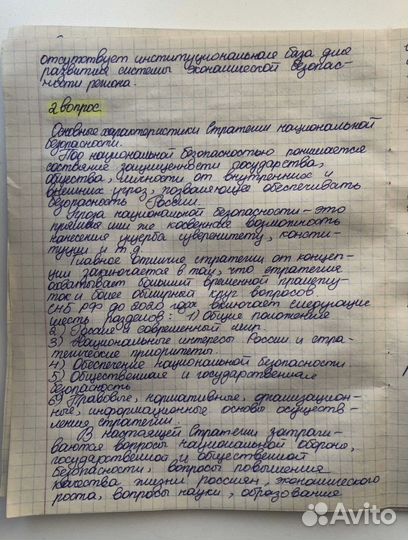 отсутствует институциональная база для
развития системы экономической безопас-
ности региона.
2 вопрос.
Основные характеристики Стратегии национальной
безопасности.
Под национальной безопасностью понимается
состояние защищенности государства,
общества, личности от внутренних и
внешних угроз, позволяющее обеспечивать
безопасность России.
Угроза национальной безопасности - это
прямая или же косвенная возможность
нанесения ущерба суверенитету, консти-
туции и т.д.
Главное отличие стратегии от концеп-
ции заключается в том, что стратегия
охватывает больший временной промежу-
ток и более обширней круг вопросов.
СНБ РФ до 2020 года включает следующие
шесть разделов: 1) Общие положения
2) Россия и современный мир.
3) Национальные интересы России и стра-
тегические приоритеты.
4) Обеспечение национальной безопасности
5) Общественная и государственная
безопасность
6) Правовые, нормативные, организацион-
ные, информационные основы осуществ-
ления стратегии.
В настоящей стратегии затраги-
ваются вопросы национальной обороны,
государственной и общественной
безопасности, вопросы повышения
качества жизни россиян, экономического
роста, вопросы науки, образования
Avito